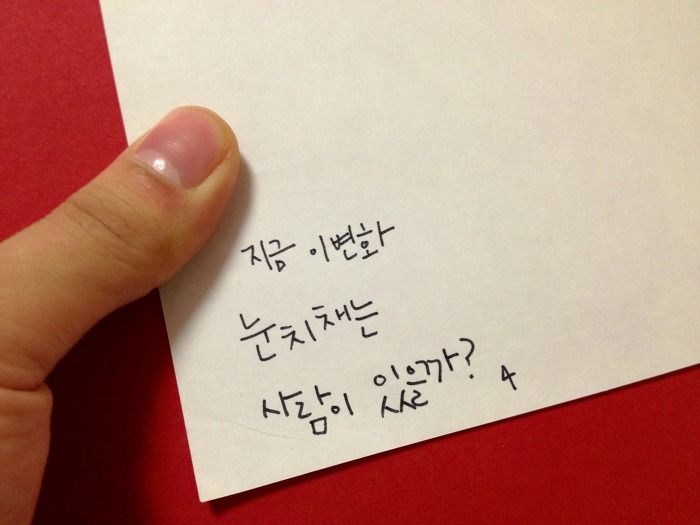 지금 이변화
눈치채는
사람이 있을까? 4